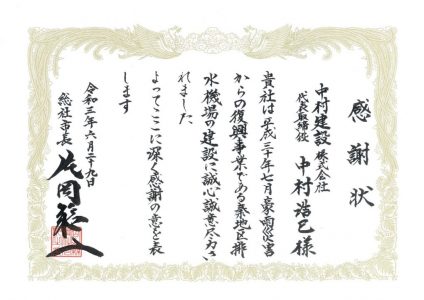 感謝状
中村建設株式会社
代表取締役
中村浩巳様
貴社は平成三十年七月豪雨災害
からの復興事業である秦地区排
水機場の建設に誠心誠意尽力さ
れました
よってここに深く感謝の意を表
します
令和三年六月二十九日
総社市長
片岡聡一